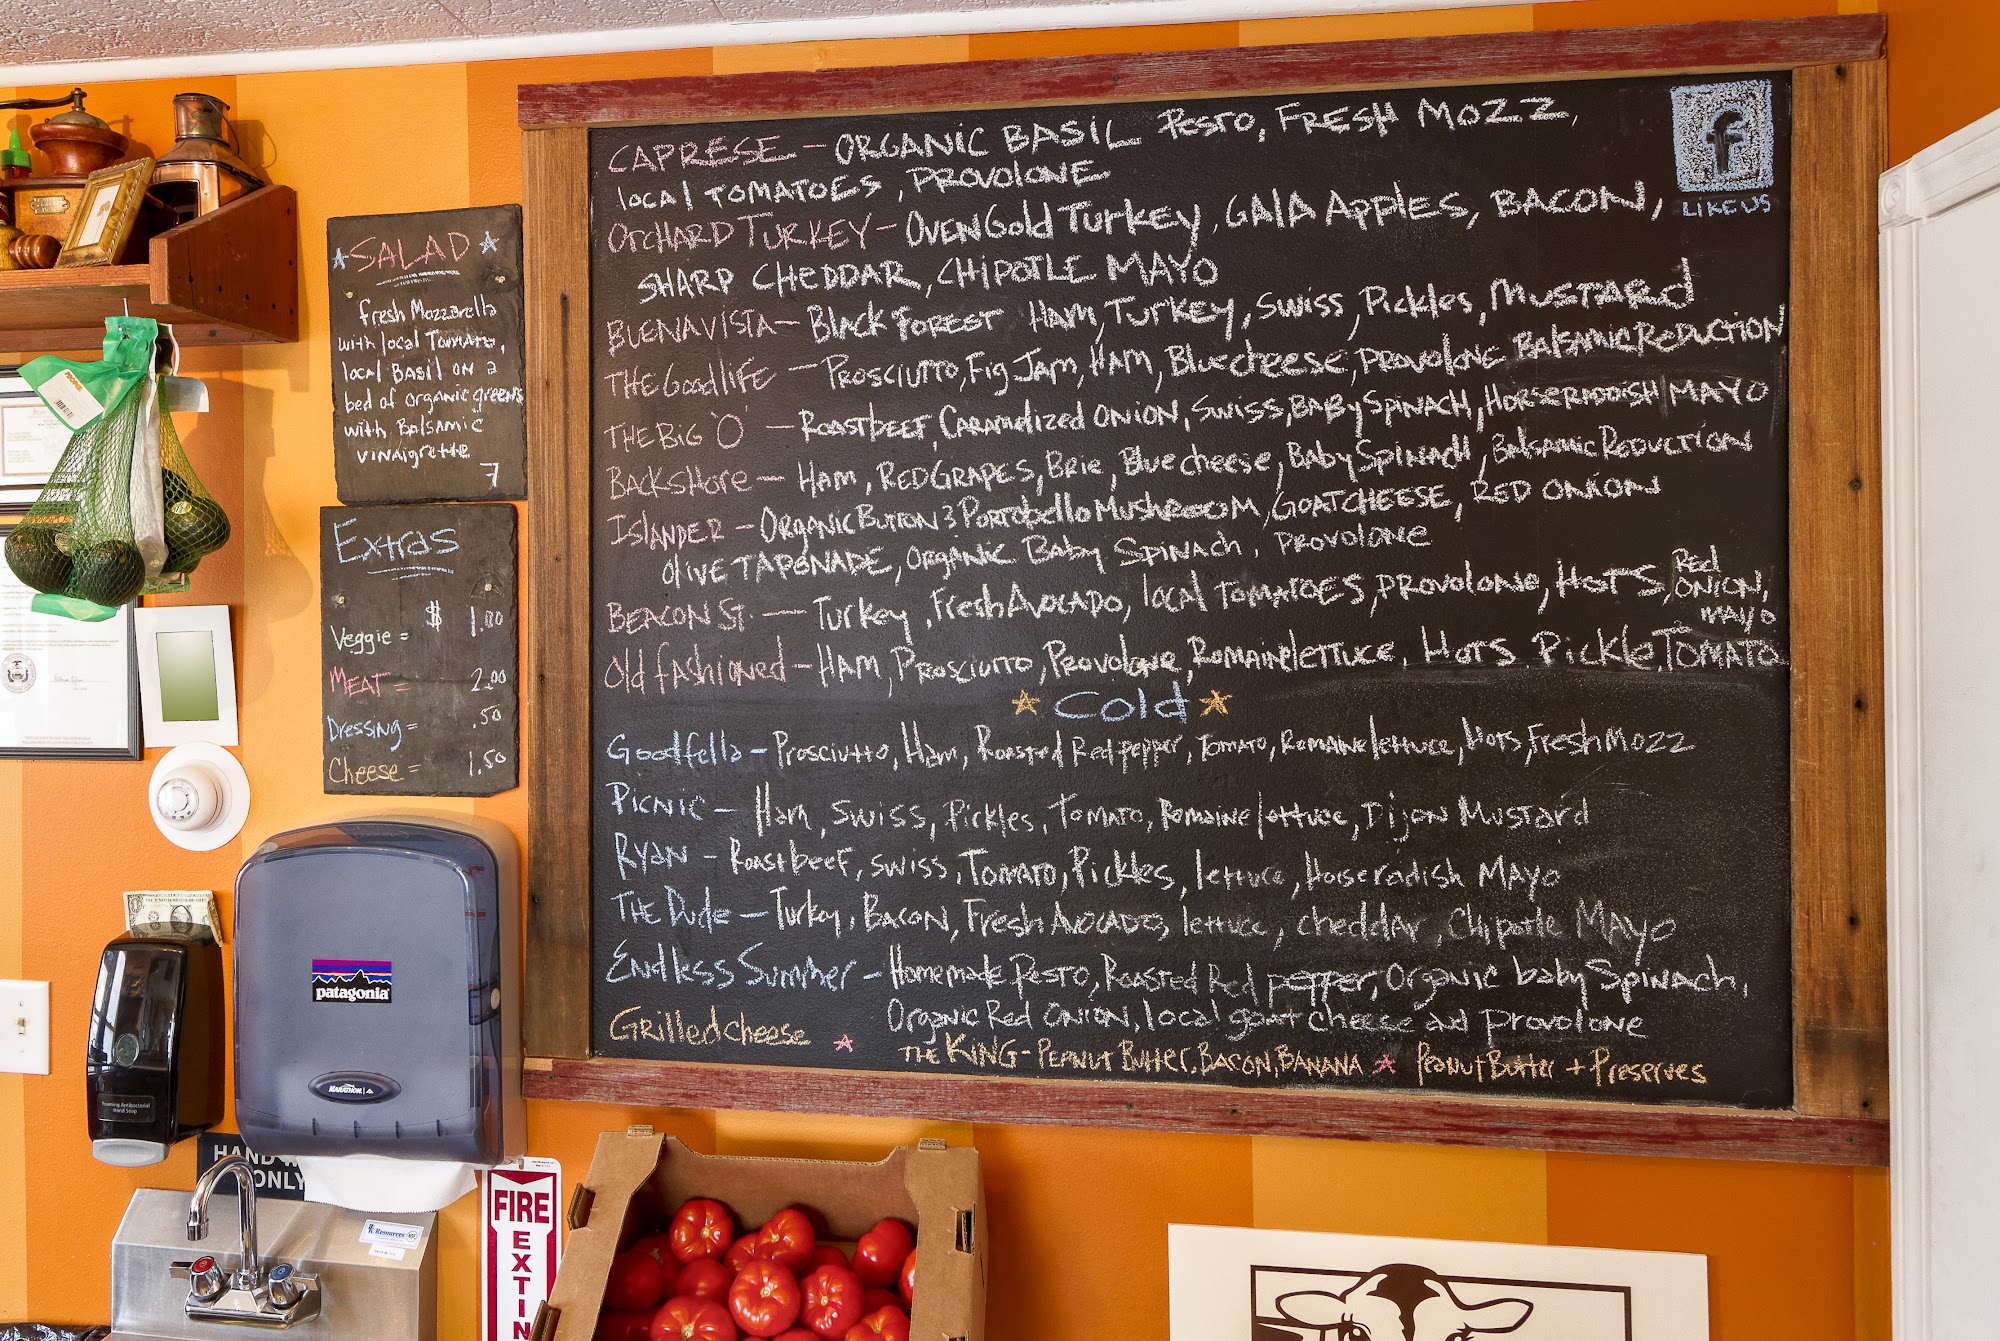 SALAD
fresh Mozzarella
with local Tomato,
local BASIL ON a
bed of organic greens
with BALSAMIC
VINAIGRETTE
7
Extras
Veggie = $ 1.00
MEAT = 2.00
Dressing = .50
Cheese = 1.50
CAPRESE - ORGANIC BASIL PESTO, FRESH MOZZ,
local TOMATOES, PROVOLONE
ORCHARD TURKEY - OVENGOLD TURKEY, GALA APPLES, BACON,
SHARP CHEDDAR, CHIPOTLE MAYO
BUENA VISTA - BLACK FOREST HAM, TURKEY, SWISS, PICKLES, MUSTARD
THE GOOD LIFE - PROSCIUTTO, FIG JAM, HAM, Blue cheese, PROVOLONE BALSAMIC REDUCTION
THE BIG 'O' - ROAST BEEF, CARAMELIZED ONION, SWISS, BABY SPINACH, HORSERIDDISH MAYO
BACKSHORE - HAM, RED GRAPES, BRIE, Blue cheese, BABY SPINACH, BALSAMIC REDUCTION
ISLANDER - ORGANIC BUTTON & PORTOBELLO MUSHROOM, GOAT CHEESE, RED ONION
OLIVE TAPONADE, ORGANIC BABY SPINACH, PROVOLONE
BEACON ST. - TURKEY, FRESH AVOCADO, local TOMATOES, PROVOLONE, HOTS, RED ONION, MAYO
Old fashioned - HAM, PROSCIUTTO, PROVOLONE, ROMAINE LETTUCE, HOTS PICKLE, TOMATO
Cold
Goodfella - Prosciutto, Ham, Roasted Red pepper, Tomato, Romaine lettuce, Hots, Fresh MOZZ
PICNIC - Ham, SWISS, Pickles, TOMATO, Romaine lettuce, Dijon Mustard
RYAN - Roast beef, SWISS, TOMATO, Pickles, lettuce, Horseradish MAYO
THE Dude - Turkey, BACON, Fresh AVOCADO, lettuce, cheddar, Chipotle MAYO
Endless Summer - Homemade Pesto, Roasted Red pepper, Organic baby Spinach,
Organic Red ONION, local goat cheese and provolone
Grilled cheese
THE KING - PEANUT Butter, BACON, BANANA
PEANUT Butter + Preserves
f
LIKE US
patagonia
MARATHON
Foaming Antibacterial
Hand Soap
HAND
ONLY
Resources
FIRE
EXTIN